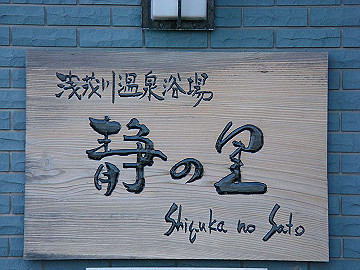 浅茂川温泉浴場
静の里
Shizuka no Sato